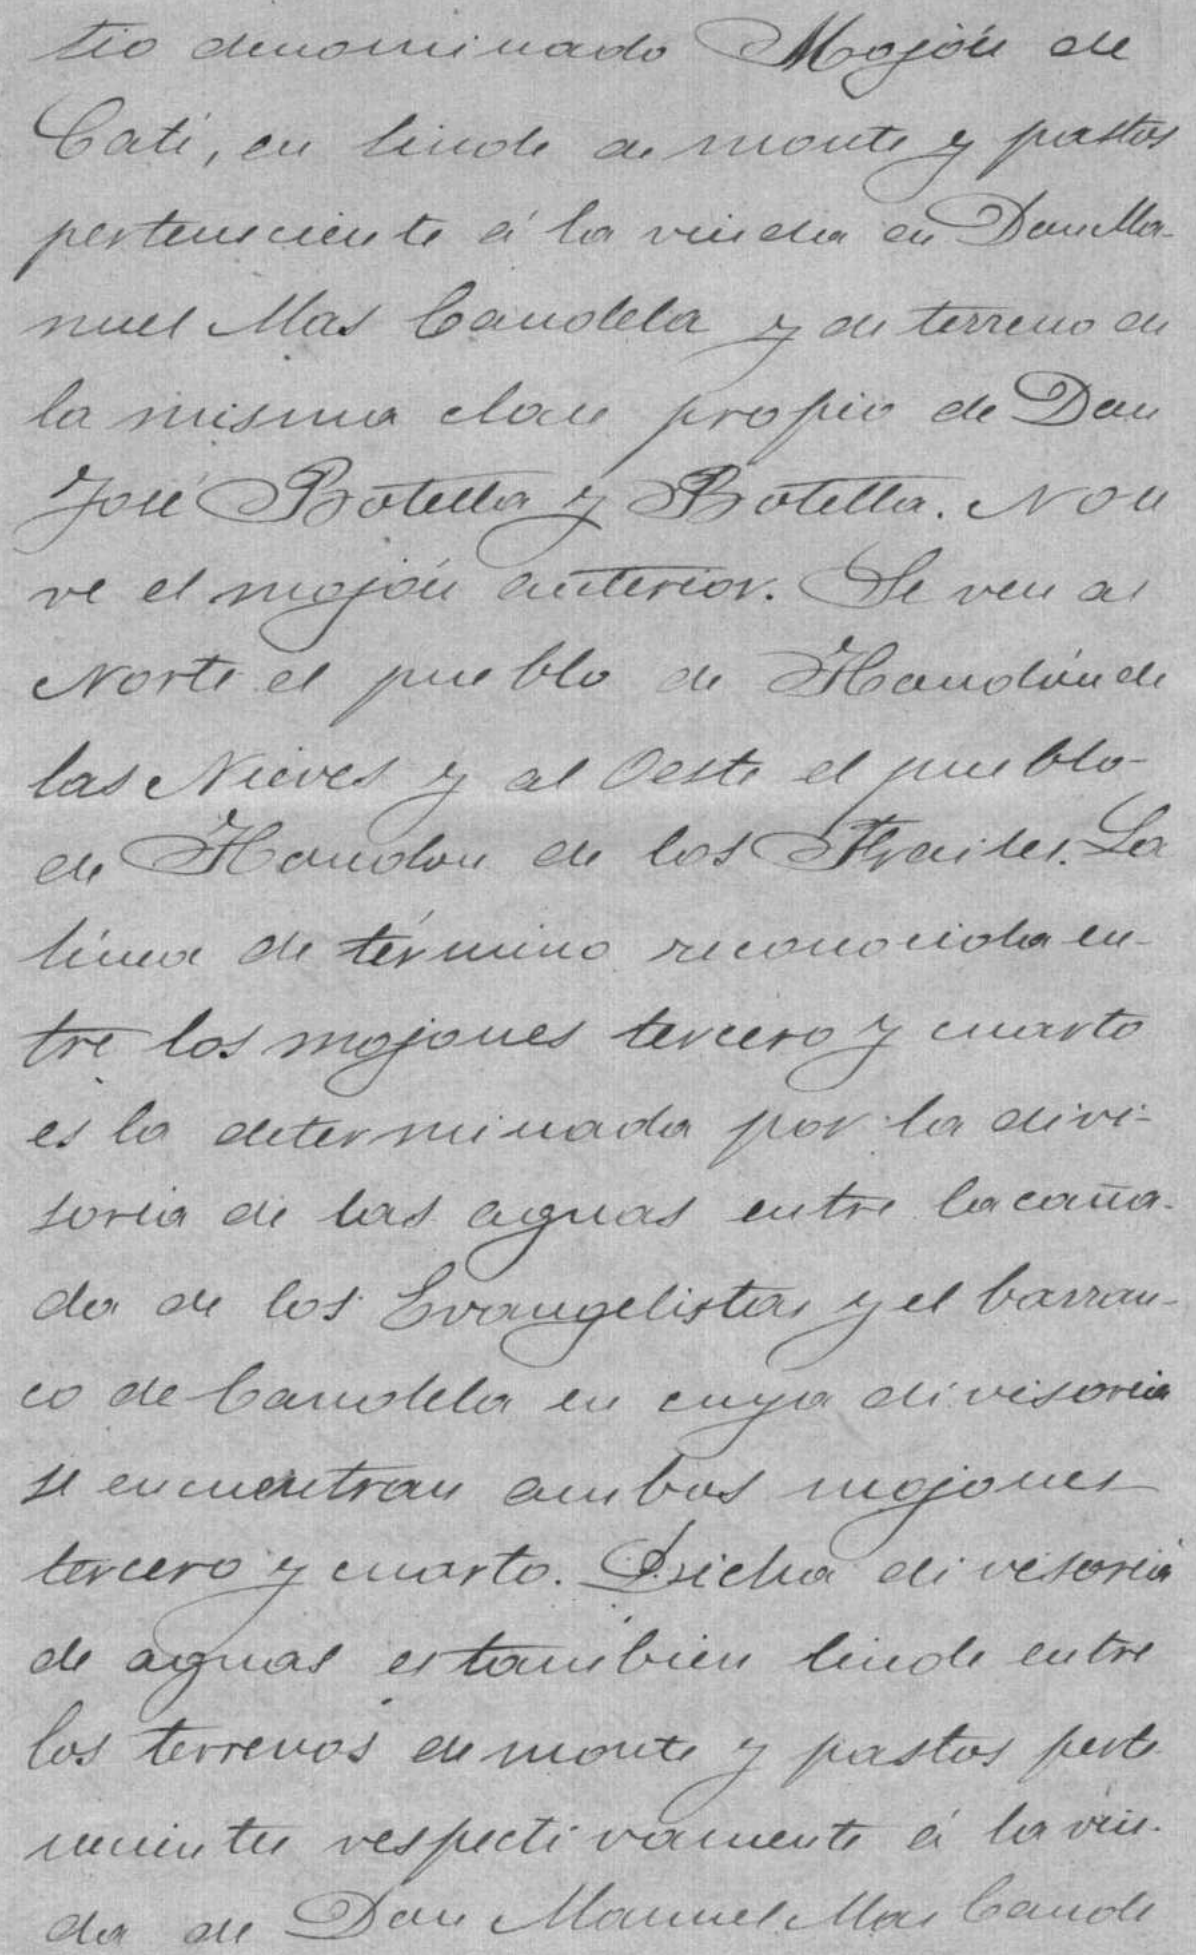 tio denominado Mojón de
Catí, en linde de monte y pastos
perteneciente á la viuda de Don Ma-
nuel Mas Candela y de terreno de
la misma clase propio de Don
José Botella y Botella. No se
ve el mojón anterior. Se ven al
Norte el pueblo de Hondón de
las Nieves y al Oeste el pueblo-
de Hondon de los Frailes. La
línea de término reconocida en-
tre los mojones tercero y cuarto
es la determinada por la divi-
soria de las aguas entre la caña-
da de los Evangelistas y el barran-
co de Candela en cuya divisoria
se encuentran ambos mojones
tercero y cuarto. Dicha divisoria
de aguas es tambien linde entre
los terrenos de monte y pastos perte
necientes respectivamente á la viu-
da de Don Manuel Mas Cande